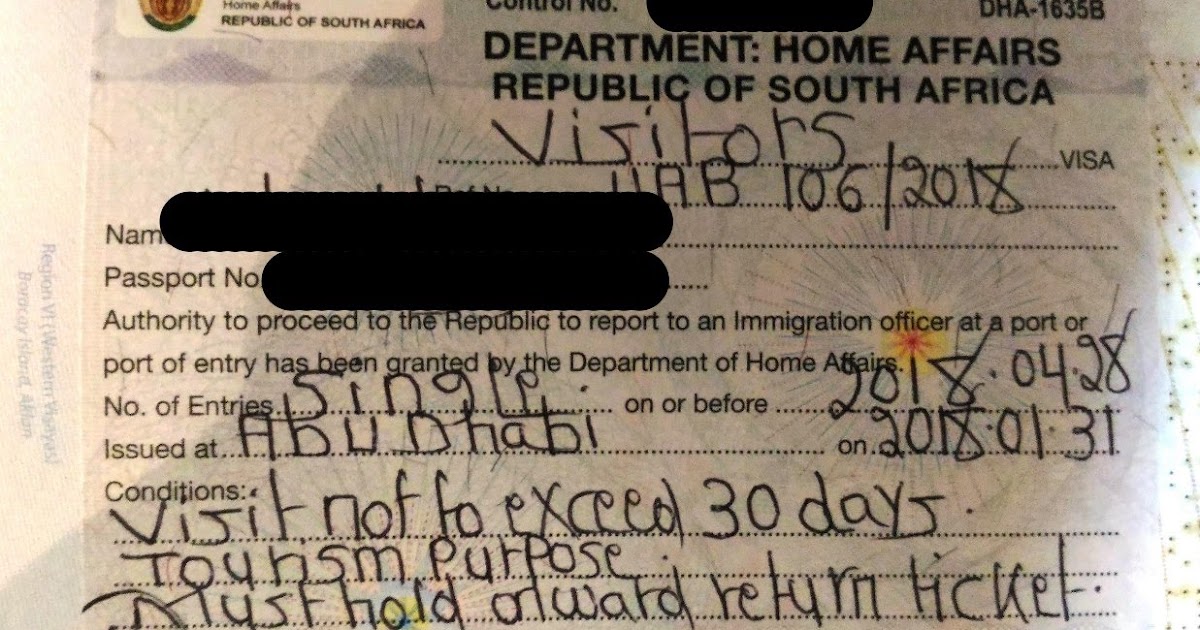 Home Affairs
REPUBLIC OF SOUTH AFRICA
Control No.
DHA-1635B
DEPARTMENT: HOME AFFAIRS
REPUBLIC OF SOUTH AFRICA
Visitors VISA
Ref No UAB 106/2018
Nam
Passport No.
Authority to proceed to the Republic to report to an Immigration officer at a port or
port of entry has been granted by the Department of Home Affairs.
No. of Entries Single on or before 2018.04.28
Issued at Abu Dhabi on 2018.01.31
Conditions:
Visit not to exceed 30 days.
Tourism Purpose.
Must hold onward return ticket.
Region VI (Western Visayas)
Boracay Island, Aklan